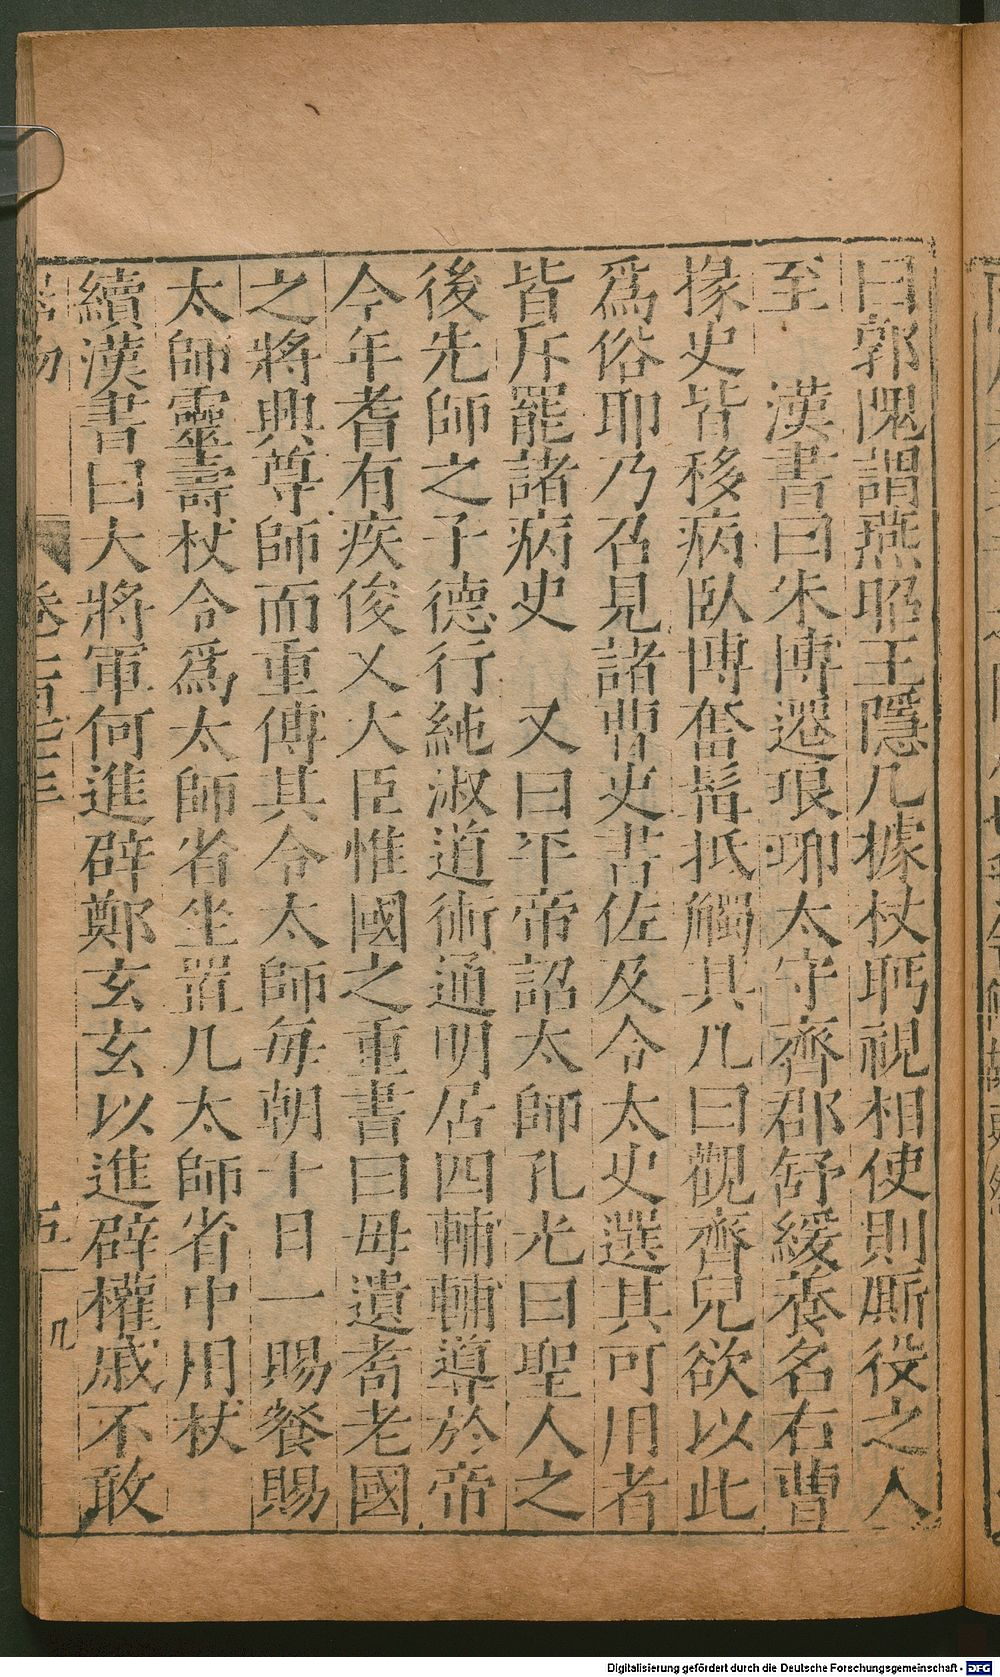 曰郭隗謂燕昭王隱几據杖眄視相使則厮役之人
至　漢書曰朱博遷琅琊太守齊郡舒緩養名右曹
掾史皆移病臥博奮髯抵觸其几曰觀齊兒欲以此
爲俗耶乃召見諸曹史書佐及令太史選其可用者
皆斥罷諸病史　又曰平帝詔太師孔光曰聖人之
後先師之子德行純淑道術通明居四輔輔導於帝
今年耆有疾俊乂大臣惟國之重書曰毋遺耇老國
之將興尊師而重傅其令太師每朝十日一賜餐賜
太師靈壽杖令爲太師省坐置几太師省中用杖
續漢書曰大將軍何進辟鄭玄玄以進辟權戚不敢
卷一百三十三
五
几
Digitalisierung gefördert durch die Deutsche Forschungsgemeinschaft - DFG